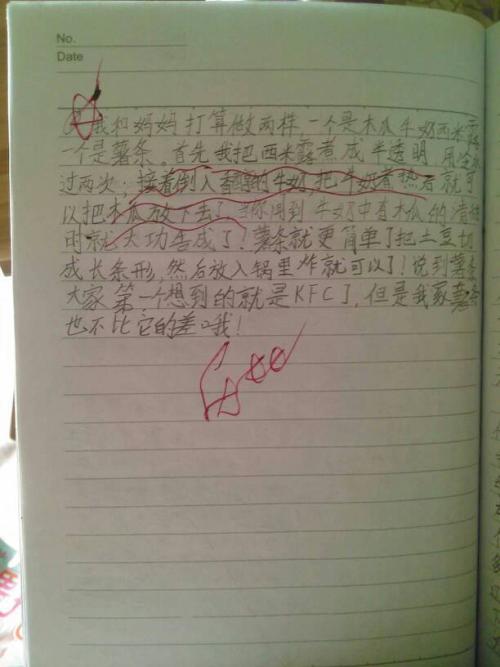 No.
Date
我和妈妈打算做两样,一个是木瓜牛奶西米露
一个是薯条。首先我把西米露煮成半透明,用冷水
过两次;接着倒入香醇的牛奶,把牛奶煮热后就可
以把木瓜放下去了,当你闻到牛奶中有木瓜的清
时就大功告成了!薯条就更简单了把土豆切
成长条形,然后放入锅里炸就可以了!说到薯条
大家第一个想到的就是KFC了,但是我家薯条
也不比它的差哦!